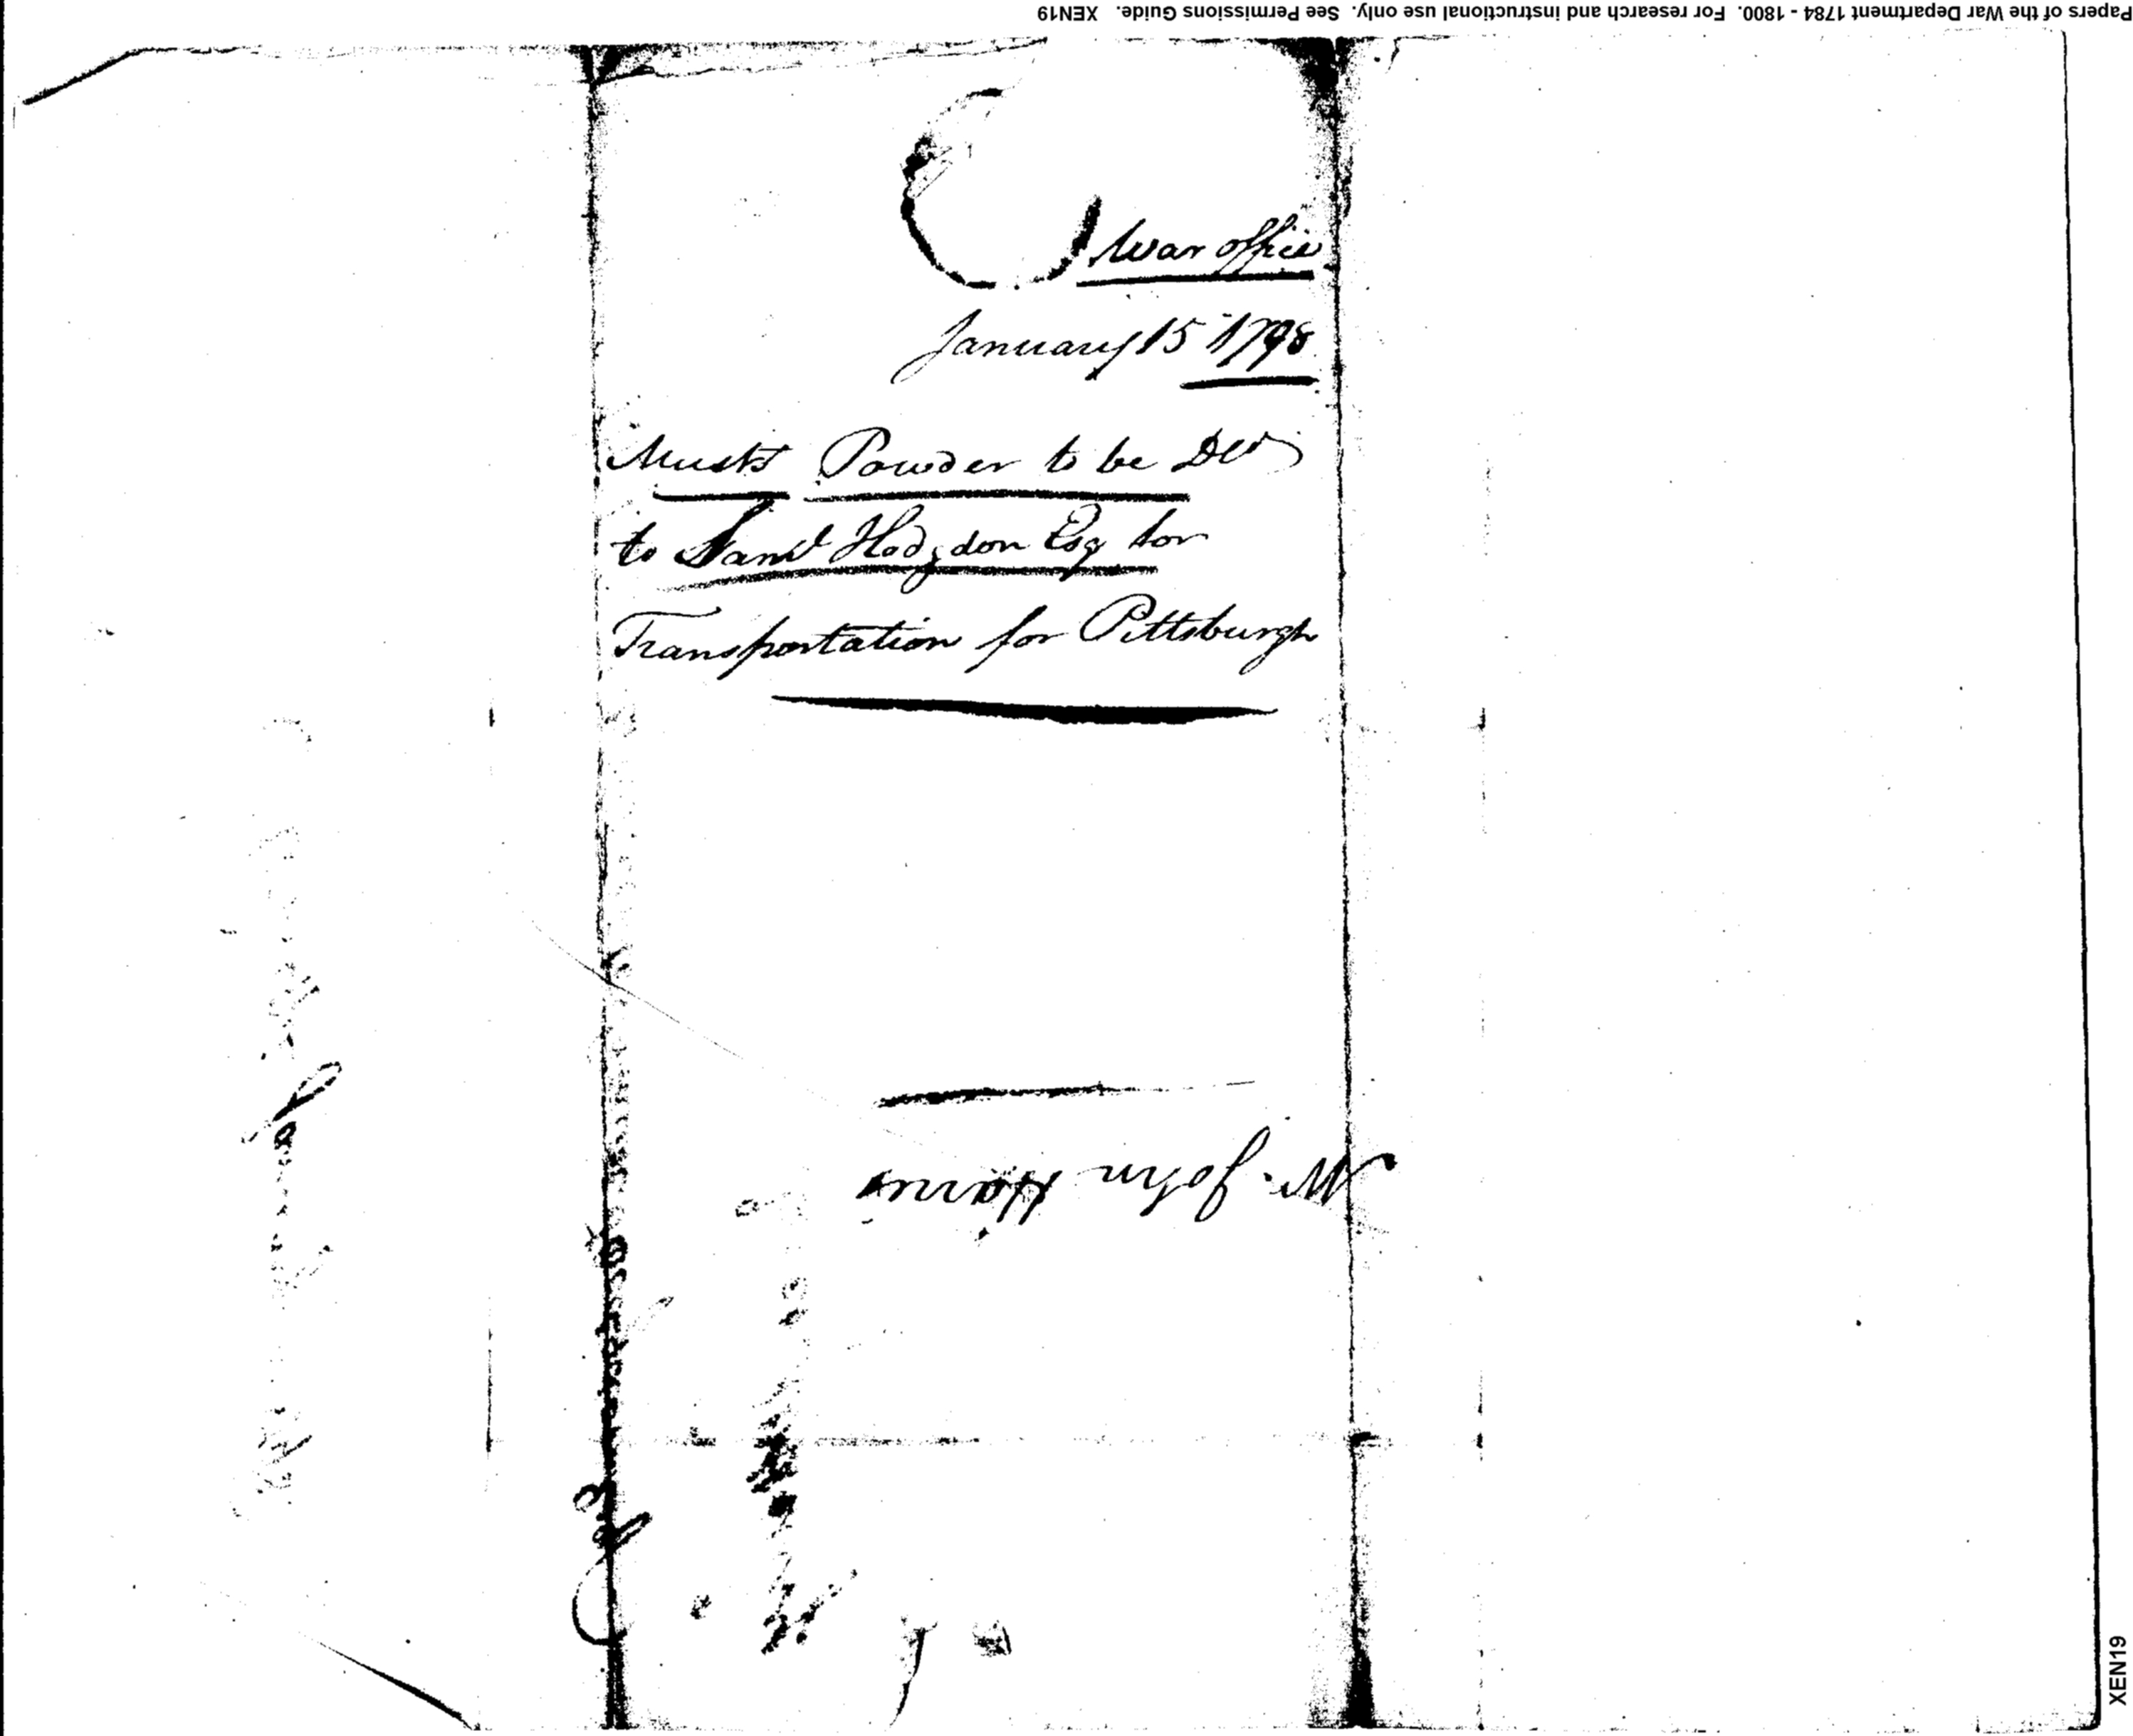 Papers of the War Department 1784 - 1800. For research and instructional use only. See Permissions Guide. XEN19
War office
January 15 1798
Muskt Powder to be Dd
to Saml Hodgdon Esq for
Transportation for Pittsburgh
Mr. John Harris
XEN19